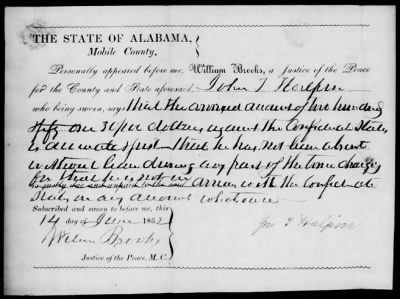 THE STATE OF ALABAMA,
Mobile County,
Personally appeared before me, William Brooks, a Justice of the Peace
for the County and State aforesaid John T Halpin
who being sworn, says that the annexed account of two hundred
fifty one 30/100 dollars against the Confederate States
is accurate & just - that he has not been absent
without leave during any part of the time charged
for that he is not in arrears with the Confederate
States on any account whatsoever
Subscribed and sworn to before me, this
14 day of June 1862
William Brooks
Jno T Halpin
Justice of the Peace, M. C.